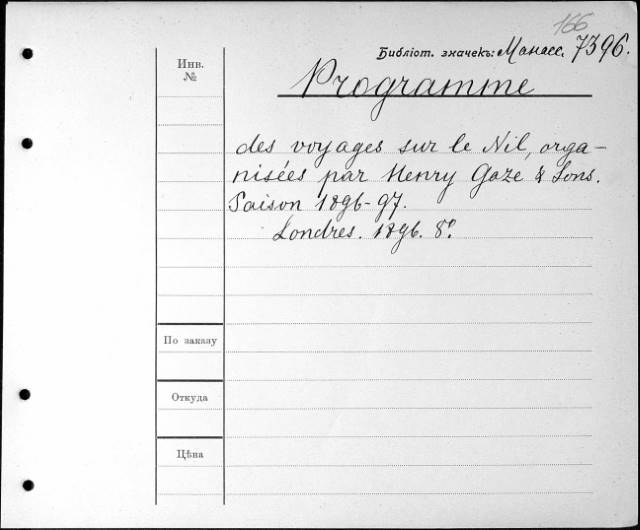 166
Библіот. значекъ: Манасс. 7396.
Инв.
№
Programme
des voyages sur le Nil, orga-
nisées par Henry Gaze & Sons.
Saison 1896-97.
Londres. 1896. 8º.
По заказу
Откуда
Цѣна